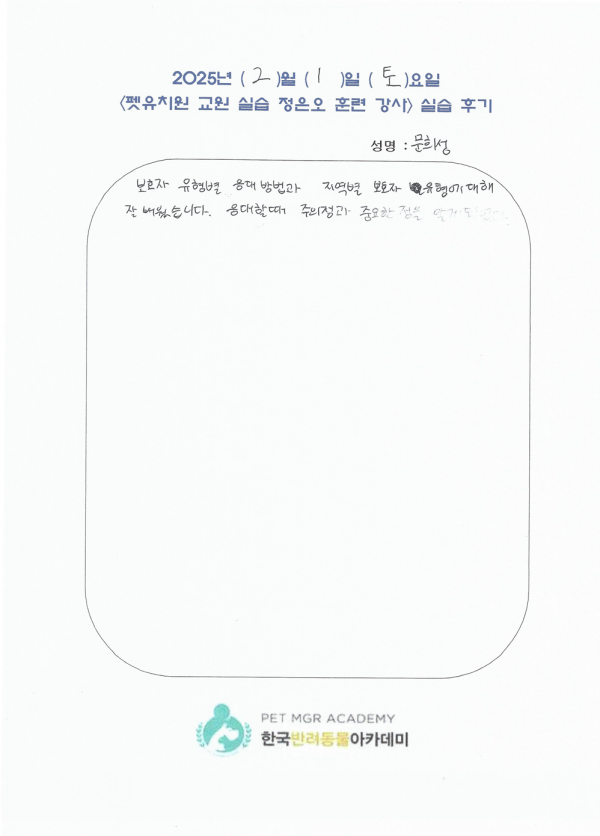 2025년 ( 2 )월 ( 1 )일 ( 토 )요일
<펫유치원 교원 실습 정은오 훈련 강사> 실습 후기
성명 : 문희성
보호자 유형별 응대 방법과 지역별 보호자 유형에 대해
잘 배웠습니다. 응대할때 주의점과 중요한 점을 알게 되었습니다.
PET MGR ACADEMY
한국반려동물아카데미